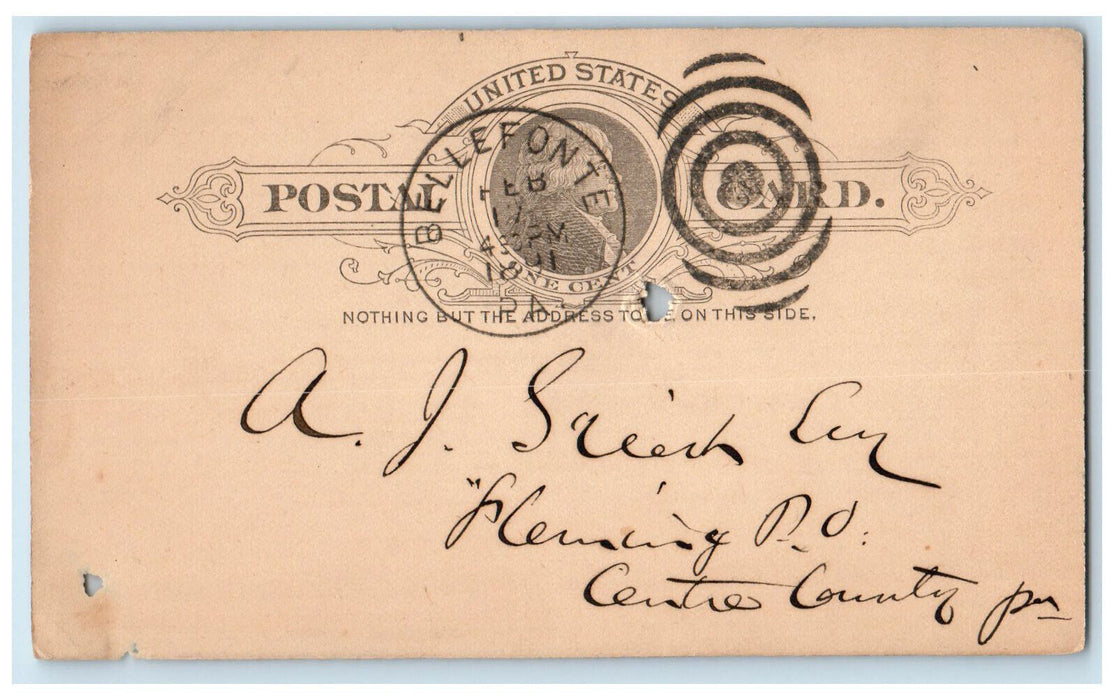 UNITED STATES
POSTAL CARD.
ONE CENT
BELLEFONTE
FEB
17
PM
18
PA.
NOTHING BUT THE ADDRESS TO BE ON THIS SIDE.
A. J. Griest Esq
"Fleming P.O.
Centre County pa